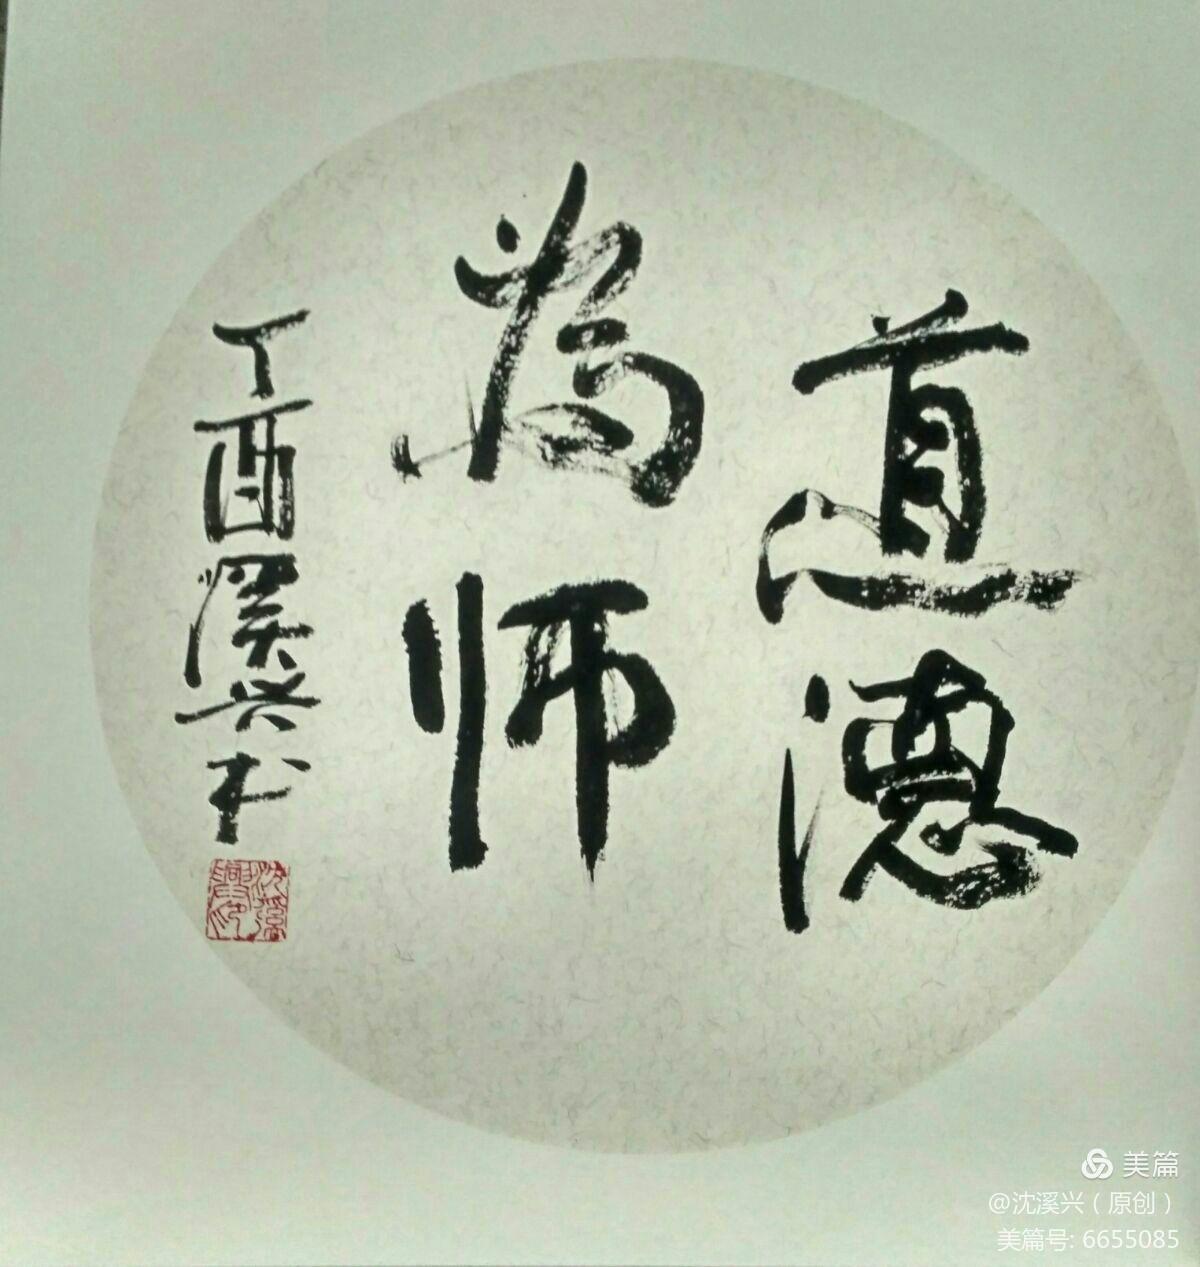 道德
為师
丁酉溪兴书
沈溪兴印
美篇
@沈溪兴（原创）
美篇号: 6655085